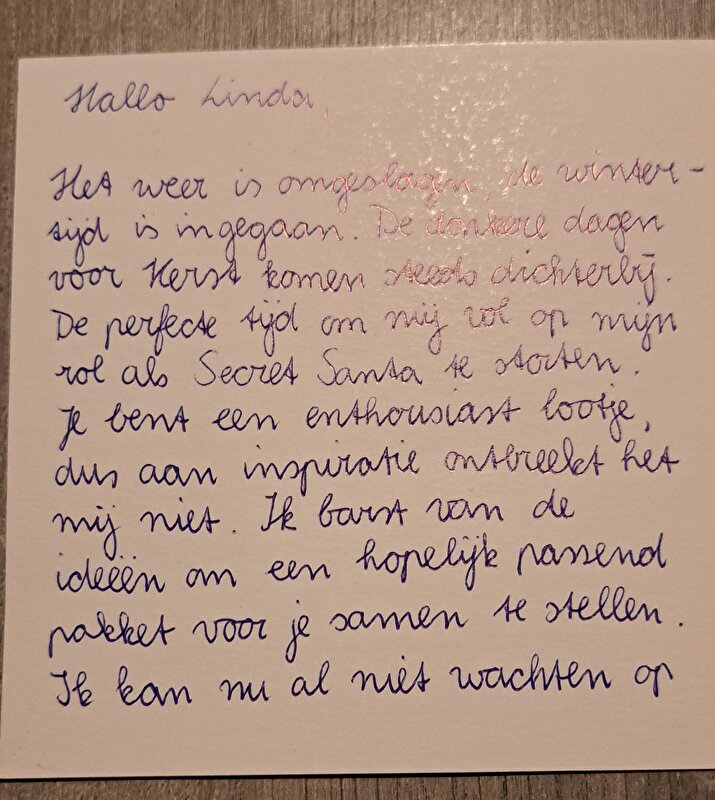 Hallo Linda,
Het weer is omgeslagen, de winter-
tijd is ingegaan. De donkere dagen
voor Kerst komen steeds dichterbij.
De perfecte tijd om mij vol op mijn
rol als Secret Santa te storten.
Je bent een enthousiast lootje,
dus aan inspiratie ontbreekt het
mij niet. Ik barst van de
ideeën om een hopelijk passend
pakket voor je samen te stellen.
Ik kan nu al niet wachten op